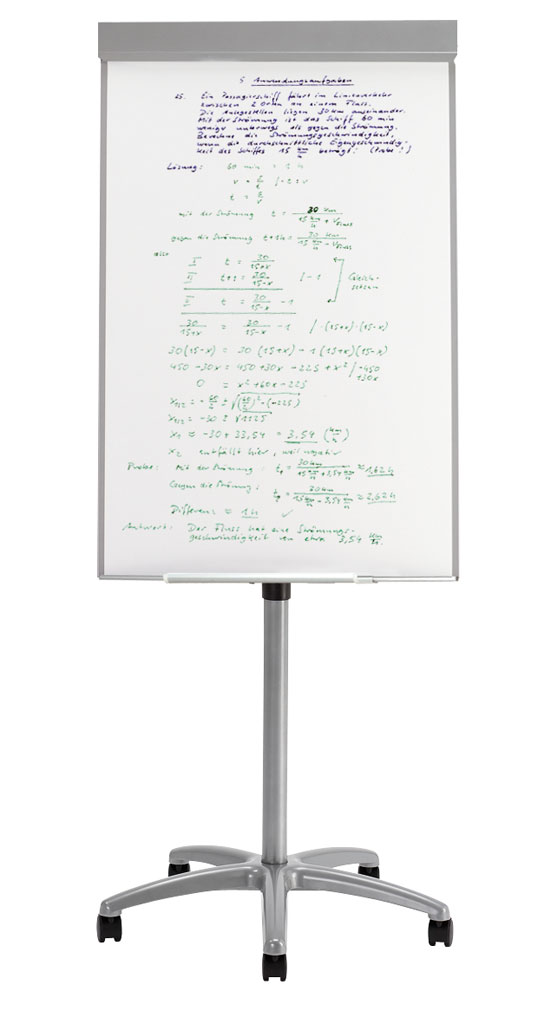 5 Anwendungsaufgaben
25. Ein Passagierschiff fährt im Linienverkehr
zwischen 2 Orten an einem Fluss.
Die Anlegestellen liegen 30km auseinander.
Mit der Strömung ist das Schiff 60 min
weniger unterwegs als gegen die Strömung.
Berechne die Strömungsgeschwindigkeit,
wenn die durchschnittliche Eigengeschwindig-
keit des Schiffes 15 km/h beträgt! (Probe!)
Lösung: 60 min = 1h
v = s/t |·t :v
t = s/v
mit der Strömung t = 30 km / (15 km/h + vFluss)
gegen die Strömung t+1h = 30 km / (15 km/h - vFluss)
also
I t = 30/(15+x)
II t+1 = 30/(15-x) |-1
Gleich-
setzen
II t = 30/(15-x) -1
30/(15+x) = 30/(15-x) -1 |·(15+x)·(15-x)
30(15-x) = 30(15+x) - 1(15+x)(15-x)
450-30x = 450+30x - 225 + x² |-450 +30x
0 = x²+60x-225
x1/2 = -60/2 ± √((60/2)²-(-225))
x1/2 = -30 ± √1125
x1 ≈ -30 + 33,54 = 3,54 (km/h)
x2 entfällt hier, weil negativ
Probe: Mit der Strömung: t1 = 30km / (15 km/h + 3,54 km/h) ≈ 1,62h
Gegen die Strömung: t2 = 30km / (15 km/h - 3,54 km/h) ≈ 2,62h
Differenz ≈ 1h ✓
Antwort: Der Fluss hat eine Strömungs-
geschwindigkeit von etwa 3,54 km/h.